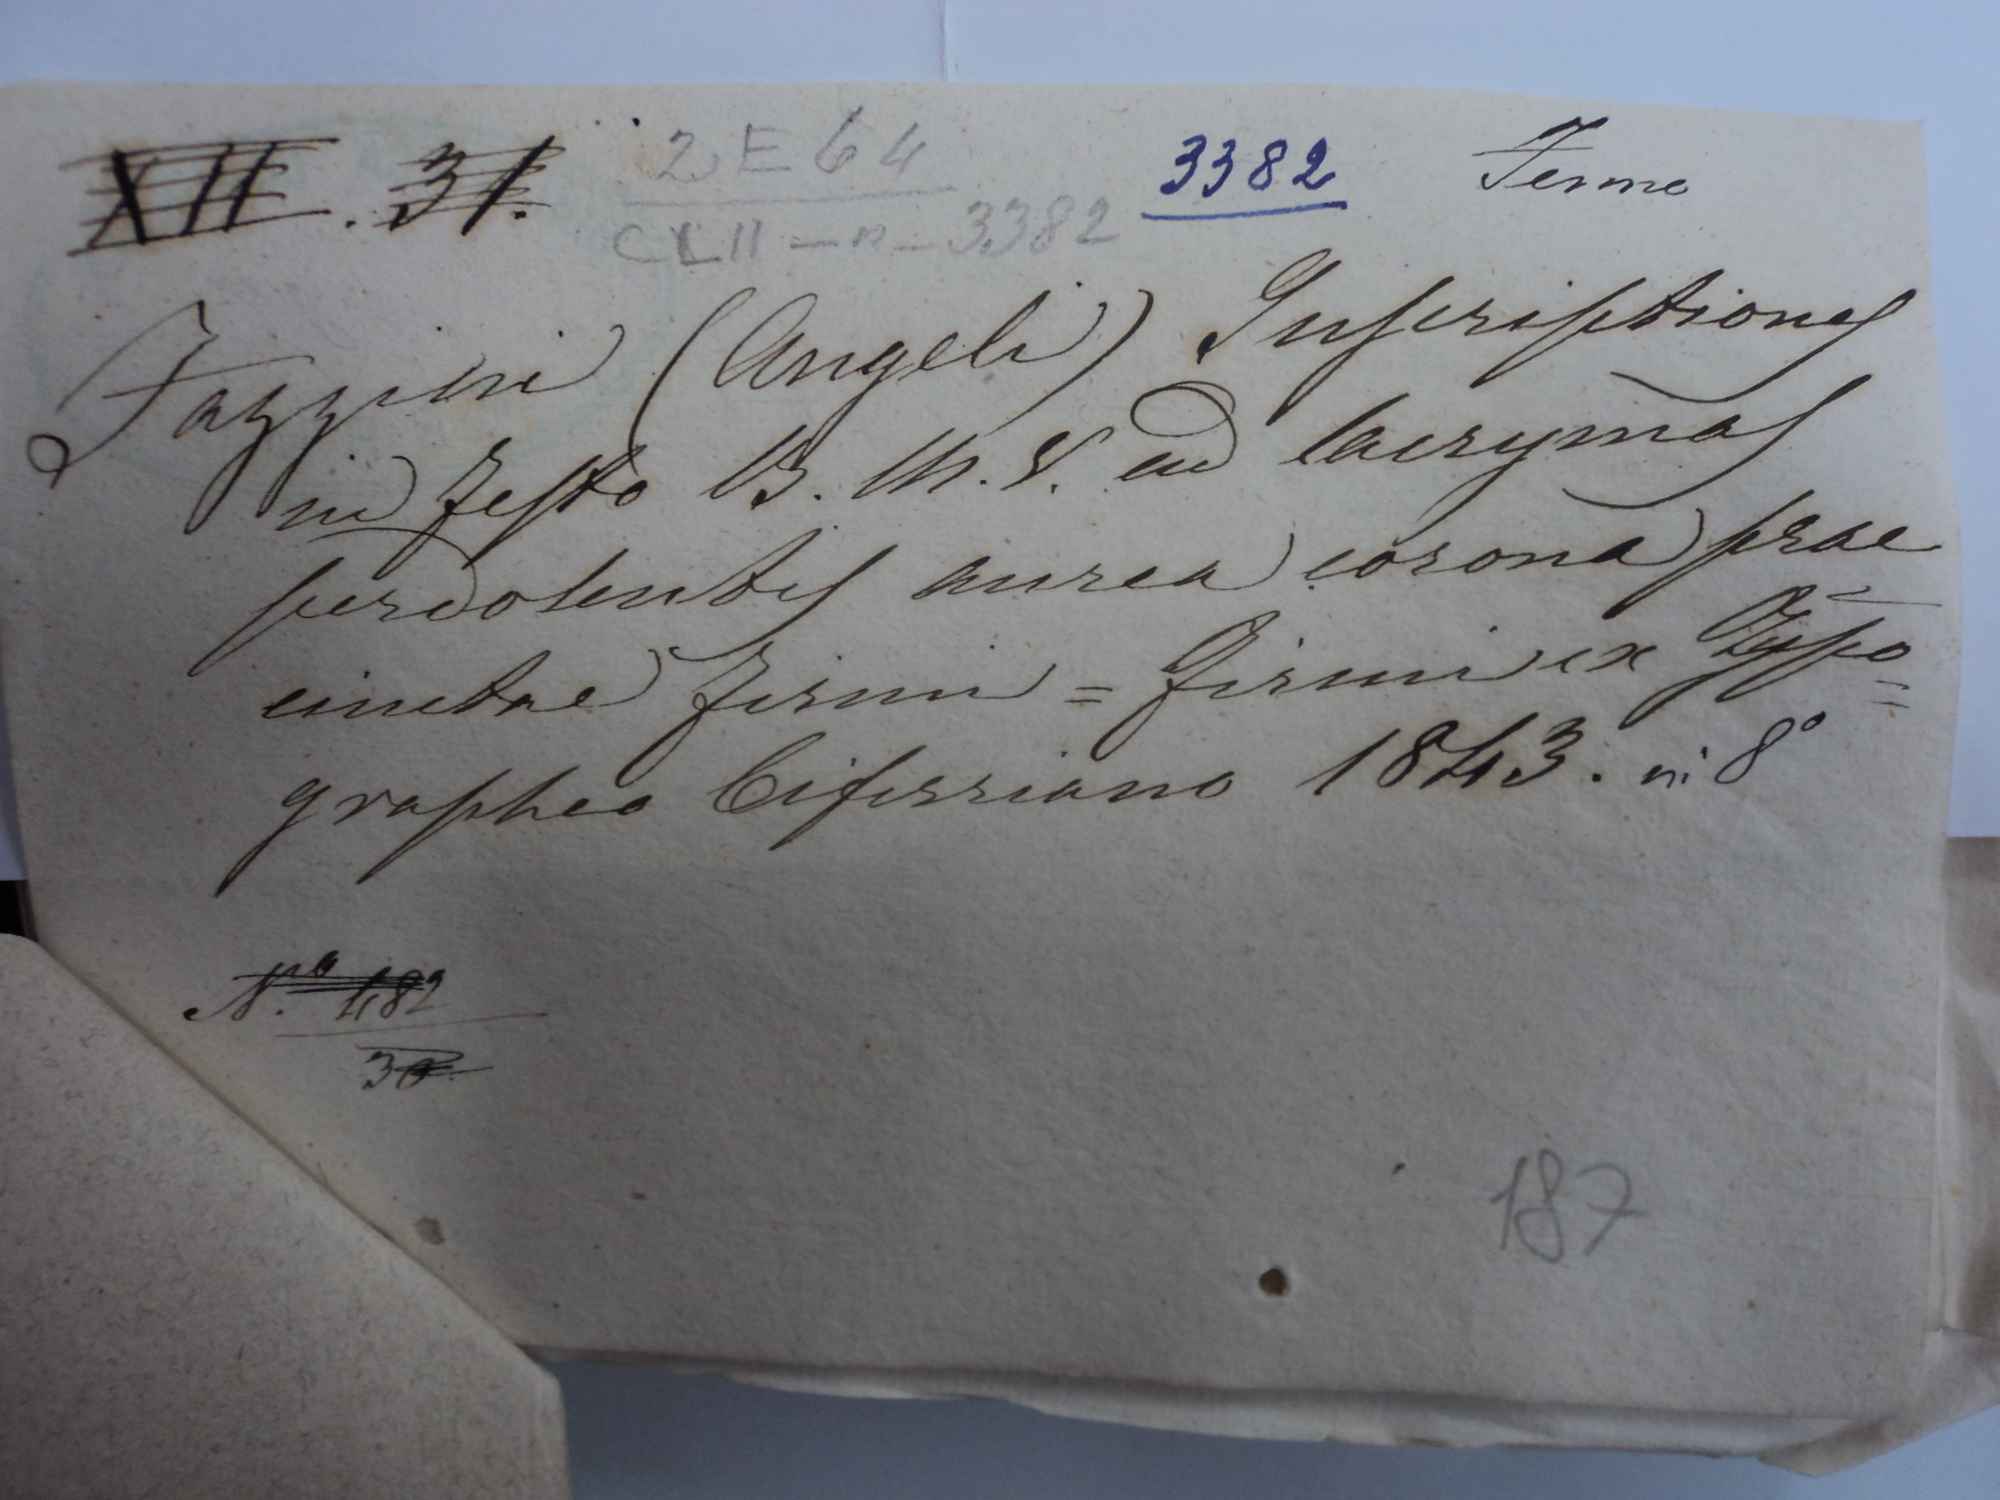 XII. 31. 2 E 64 3382 Fermo
CLII - n - 3382
Fazzini (Angeli) Inscriptiones
in festo B. M. V. ad lacrymas
perdolentis aurea corona prae
cinctae Firmi = Firmi ex Typo=
grapheo Ciferriano 1843. in 8°
N.ro 482
30
187